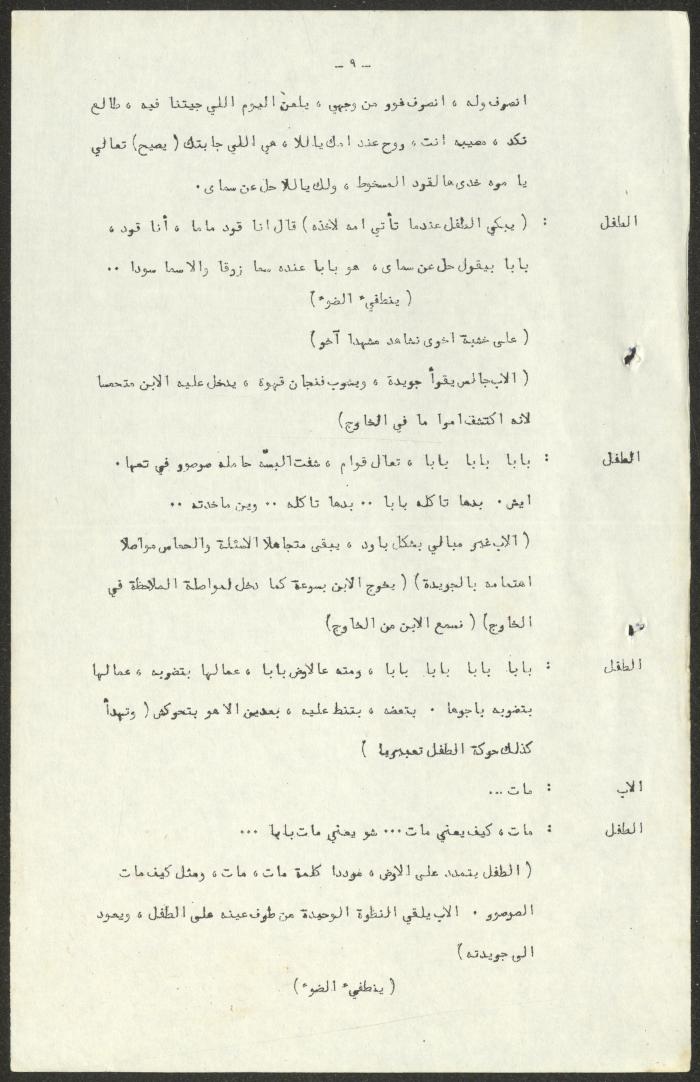 - ٩ -
انصرف وله ، انصرف فور من وجهي ، يلعن اليوم اللي جيتنا فيه ، طالع
نكد ، مصيبه انت ، روح عند امك ياللا ، هي اللي جابتك ( يصيح ) تعالي
يا مره خدى هالقرد المسخوط ، ولك ياللا حل عن سماى .
الطفل : ( يبكي الطفل عندما تأتي امه لاخذه ) قال انا قرد ماما ، أنا قرد ،
بابا بيقول حل عن سماى ، هو بابا عنده سما زرقا والا سما سودا ..
( ينطفيء الضوء )
( على خشبة اخرى نشاهد مشهدا آخر )
( الاب جالس يقرأ جريدة ، ويشرب فنجان قهوة ، يدخل عليه الابن متحمسا
لانه اكتشف امرا ما في الخارج )
الطفل : بابا بابا بابا ، تعال قوام ، شفت البسّه حامله صوصور في تمها .
ايش . بدها تاكله بابا .. بدها تاكله .. وين ماخدته ..
( الاب غير مبالي بشكل بارد ، يبقى متجاهلا الاسئلة والحماس مواصلا
اهتمامه بالجريدة ) ( يخرج الابن بسرعة كما دخل لمواصلة الملاحظة في
الخارج ) ( نسمع الابن من الخارج )
الطفل : بابا بابا بابا بابا ، رمته عالارض بابا ، عمالها بتضربه ، عمالها
بتضربه باجرها . بتعضه ، بتنط عليه ، بعدين الا هو بتحركش ( وتهدأ
كذلك حركة الطفل تعبيريا )
الاب : مات ...
الطفل : مات ، كيف يعني مات ... شو يعني مات بابا ...
( الطفل يتمدد على الارض ، مرددا كلمة مات ، مات ، ومثل كيف مات
الصرصور . الاب يلقي النظرة الوحيدة من طرف عينه على الطفل ، ويعود
الى جريدته )
( ينطفيء الضوء )